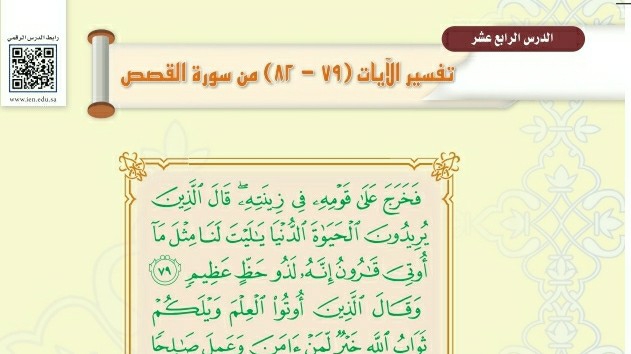 رابط الدرس الرقمي
www.ien.edu.sa
الدرس الرابع عشر
تفسير الآيات (٧٩ - ٨٢) من سورة القصص
فَخَرَجَ عَلَىٰ قَوْمِهِۦ فِى زِينَتِهِۦۖ قَالَ ٱلَّذِينَ
يُرِيدُونَ ٱلْحَيَوٰةَ ٱلدُّنْيَا يَٰلَيْتَ لَنَا مِثْلَ مَآ
أُوتِىَ قَٰرُونُ إِنَّهُۥ لَذُو حَظٍّ عَظِيمٍ ٧٩
وَقَالَ ٱلَّذِينَ أُوتُوا۟ ٱلْعِلْمَ وَيْلَكُمْ
ثَوَابُ ٱللَّهِ خَيْرٌ لِّمَنْ ءَامَنَ وَعَمِلَ صَٰلِحًا